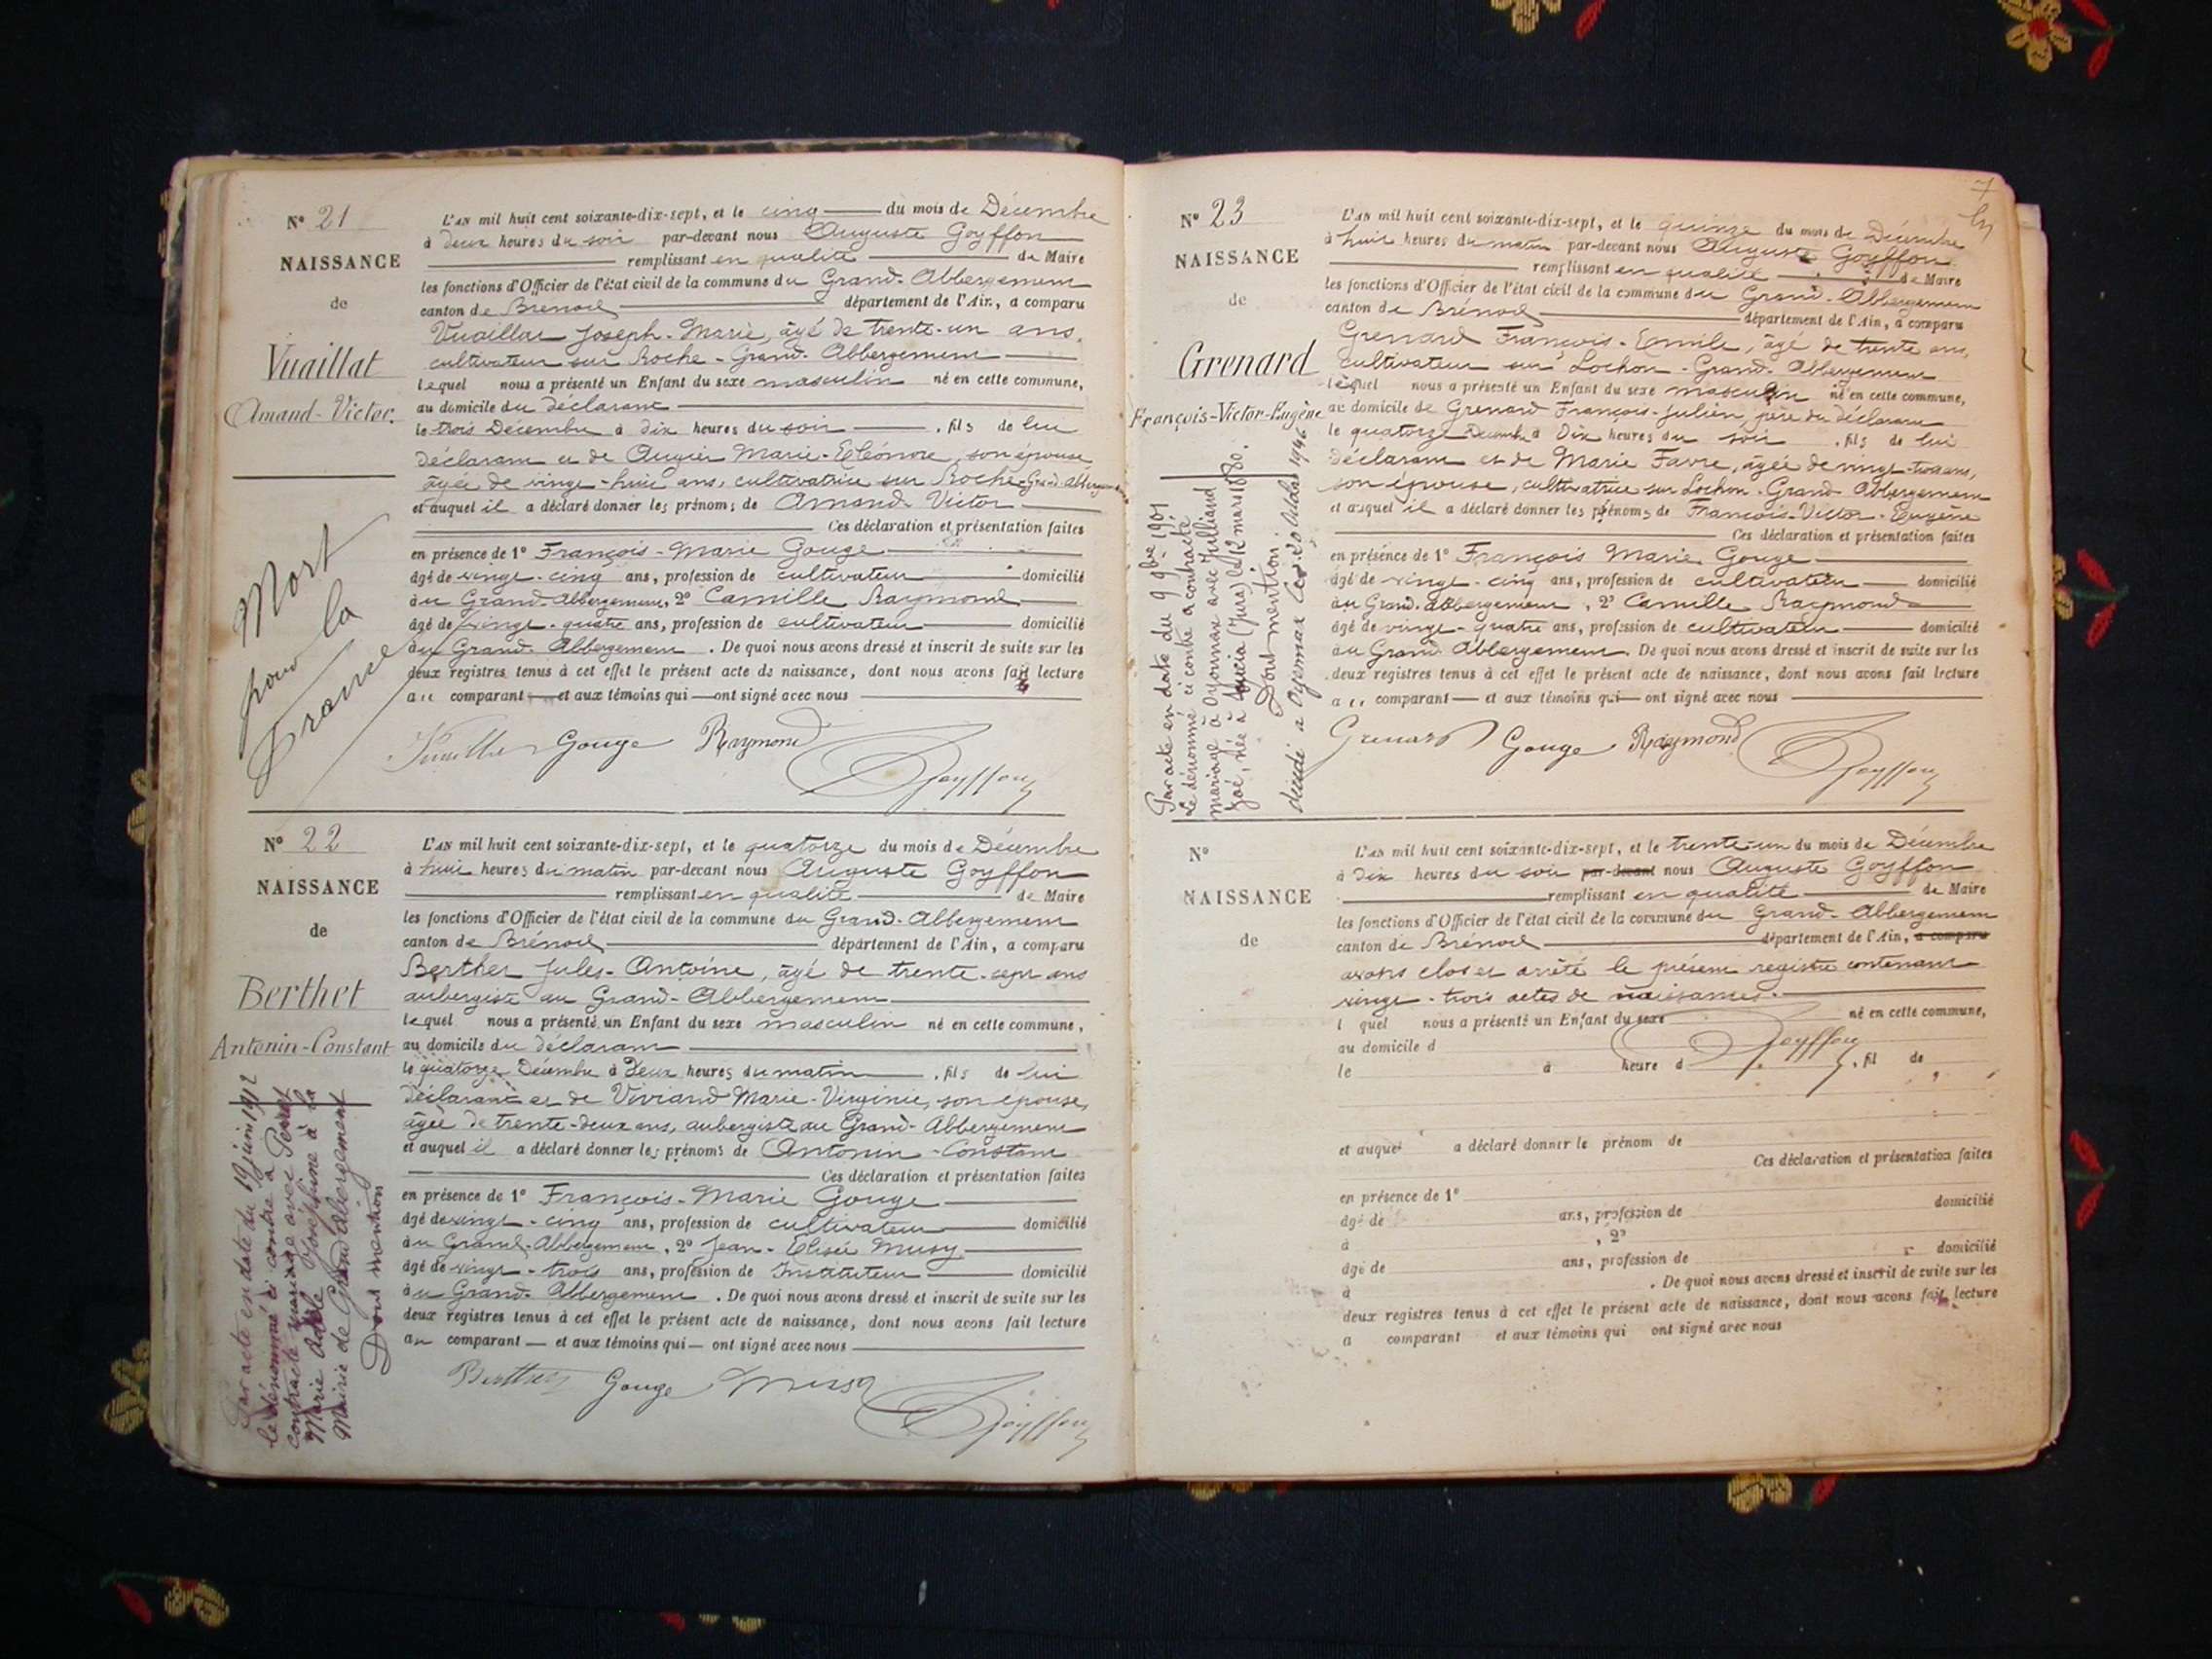 N° 21
NAISSANCE
de
Vuaillat
Amand-Victor.
Mort
pour la
France
L'AN mil huit cent soixante-dix-sept, et le cinq du mois de Décembre
à deux heures du soir par-devant nous Auguste Goyffon
remplissant en qualité de Maire
les fonctions d'Officier de l'état civil de la commune du Grand-Abbergement
canton de Brénod département de l'Ain, a comparu
Vuaillat Joseph-Marie, âgé de trente-un ans,
cultivateur sur Roche-Grand-Abbergement
lequel nous a présenté un Enfant du sexe masculin né en cette commune,
au domicile du déclarant
le trois Décembre à dix heures du soir, fils de lui
déclarant et de Augier Marie-Eléonore, son épouse
âgée de vingt-huit ans, cultivatrice sur Roche-Grand-Abbergement
et auquel il a déclaré donner les prénoms de Amand Victor
Ces déclaration et présentation faites
en présence de 1° François-Marie Gouge
âgé de vingt-cinq ans, profession de cultivateur domicilié
au Grand-Abbergement, 2° Camille Raymond
âgé de vingt-quatre ans, profession de cultivateur domicilié
au Grand-Abbergement. De quoi nous avons dressé et inscrit de suite sur les
deux registres tenus à cet effet le présent acte de naissance, dont nous avons fait lecture
au comparant et aux témoins qui ont signé avec nous
Gouge Raymond
Goyffon
N° 22
NAISSANCE
de
Berthet
Antonin-Constant
Par acte en date du 19 juin 1912
le dénommé ci contre a
contracté mariage avec Perret
Marie Adèle Joséphine à la
Mairie de Grand Abergement
Dont mention
L'AN mil huit cent soixante-dix-sept, et le quatorze du mois de Décembre
à huit heures du matin par-devant nous Auguste Goyffon
remplissant en qualité de Maire
les fonctions d'Officier de l'état civil de la commune du Grand-Abbergement
canton de Brénod département de l'Ain, a comparu
Berthet Jules-Antoine, âgé de trente-sept ans
aubergiste au Grand-Abbergement
lequel nous a présenté un Enfant du sexe masculin né en cette commune,
au domicile du déclarant
le quatorze Décembre à deux heures du matin, fils de lui
déclarant et de Viviand Marie-Virginie, son épouse,
âgée de trente-deux ans, aubergiste au Grand-Abbergement
et auquel il a déclaré donner les prénoms de Antonin-Constant
Ces déclaration et présentation faites
en présence de 1° François-Marie Gouge
âgé de vingt-cinq ans, profession de cultivateur domicilié
au Grand-Abbergement, 2° Jean-Elisée Musy
âgé de vingt-trois ans, profession de Instituteur domicilié
au Grand-Abbergement. De quoi nous avons dressé et inscrit de suite sur les
deux registres tenus à cet effet le présent acte de naissance, dont nous avons fait lecture
au comparant et aux témoins qui ont signé avec nous
Berthet Gouge Musy
Goyffon
7
N° 23
NAISSANCE
de
Grenard
François-Victor-Eugène
Par acte en date du 9 9bre 1907
Le dénommé ci contre a contracté
mariage à Oyonnax avec Julliand
Zoé, née à (Jura) le 12 mars 1880.
Dont mention.
L'AN mil huit cent soixante-dix-sept, et le quinze du mois de Décembre
à huit heures du matin par-devant nous Auguste Goyffon
remplissant en qualité de Maire
les fonctions d'Officier de l'état civil de la commune du Grand-Abbergement
canton de Brénod département de l'Ain, a comparu
Grenard François-Emile, âgé de trente ans,
cultivateur sur Lochon-Grand-Abbergement
lequel nous a présenté un Enfant du sexe masculin né en cette commune,
au domicile de Grenard François-Julien, père du déclarant
le quatorze Décembre à Dix heures du soir, fils de lui
déclarant et de Marie Favre, âgée de vingt-trois ans,
son épouse, cultivatrice sur Lochon-Grand-Abbergement
et auquel il a déclaré donner les prénoms de François-Victor-Eugène
Ces déclaration et présentation faites
en présence de 1° François Marie Gouge
âgé de vingt-cinq ans, profession de cultivateur domicilié
au Grand-Abbergement, 2° Camille Raymond
âgé de vingt-quatre ans, profession de cultivateur domicilié
au Grand Abbergement. De quoi nous avons dressé et inscrit de suite sur les
deux registres tenus à cet effet le présent acte de naissance, dont nous avons fait lecture
au comparant et aux témoins qui ont signé avec nous
Grenard Gouge Raymond
Goyffon
N°
NAISSANCE
de
L'AN mil huit cent soixante-dix-sept, et le trente-un du mois de Décembre
à dix heures du soir par-devant nous Auguste Goyffon
remplissant en qualité de Maire
les fonctions d'Officier de l'état civil de la commune du Grand-Abbergement
canton de Brénod département de l'Ain, a comparu
avons clos et arrêté le présent registre contenant
vingt-trois actes de naissances.
l quel nous a présenté un Enfant du sexe né en cette commune,
au domicile d Goyffon
le à heure d , fil de
et auquel a déclaré donner le prénom de
Ces déclaration et présentation faites
en présence de 1°
âgé de ans, profession de domicilié
à , 2°
âgé de ans, profession de domicilié
à . De quoi nous avons dressé et inscrit de suite sur les
deux registres tenus à cet effet le présent acte de naissance, dont nous avons fait lecture
a comparant et aux témoins qui ont signé avec nous